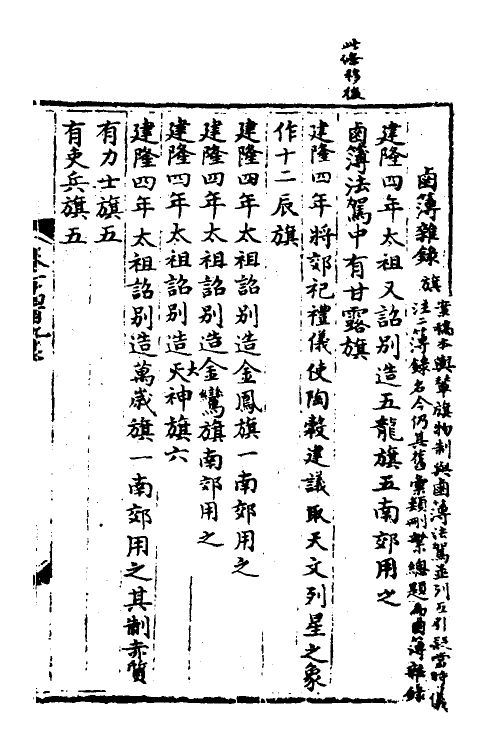 此條移後
鹵簿雜錄 旗
案稿本輿輦旗物制與鹵簿法駕並列互引疑當時儀
注二簿錄名今仍其舊彙類刪繁總題為鹵簿雜錄
建隆四年太祖又詔別造五龍旗五南郊用之
鹵簿法駕中有甘露旗
建隆四年將郊祀禮儀使陶穀建議取天文列星之象
作十二辰旗
建隆四年太祖詔別造金鳳旗一南郊用之
建隆四年太祖詔別造金鸞旗南郊用之
建隆四年太祖詔別造大神旗六
建隆四年太祖詔別造萬歲旗一南郊用之其制赤質
有力士旗五
有吏兵旗五